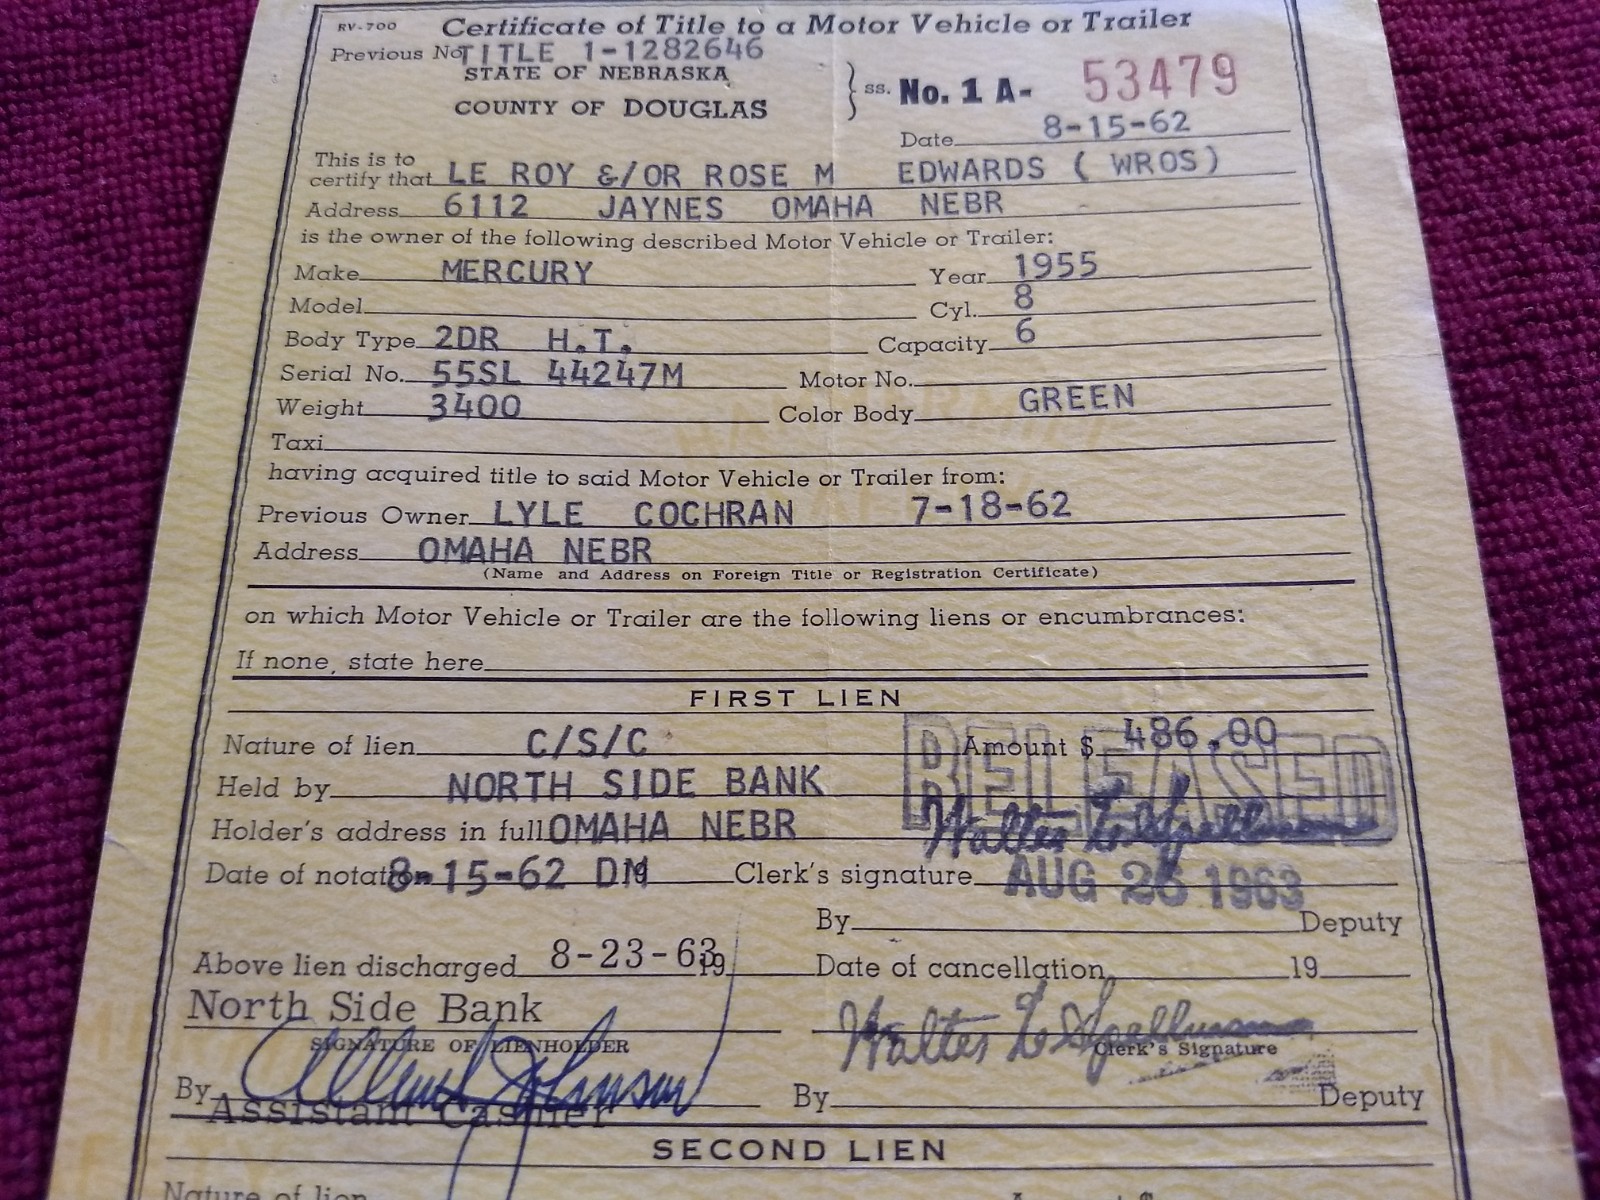 RV-700 Certificate of Title to a Motor Vehicle or Trailer
Previous No. TITLE 1-1282646
STATE OF NEBRASKA
COUNTY OF DOUGLAS
ss. No. 1 A- 53479
Date 8-15-62
This is to
certify that LE ROY &/OR ROSE M EDWARDS ( WROS)
Address 6112 JAYNES OMAHA NEBR
is the owner of the following described Motor Vehicle or Trailer:
Make MERCURY Year 1955
Model Cyl. 8
Body Type 2DR H.T. Capacity 6
Serial No. 55SL 44247M Motor No.
Weight 3400 Color Body GREEN
Taxi
having acquired title to said Motor Vehicle or Trailer from:
Previous Owner LYLE COCHRAN 7-18-62
Address OMAHA NEBR
(Name and Address on Foreign Title or Registration Certificate)
on which Motor Vehicle or Trailer are the following liens or encumbrances:
If none, state here
FIRST LIEN
Nature of lien C/S/C Amount $ 486.00
RELEASED
Held by NORTH SIDE BANK
Holder's address in full OMAHA NEBR
Date of notation 8-15-62 DM 19 Clerk's signature AUG 26 1963
By Deputy
Above lien discharged 8-23-63 19 Date of cancellation 19
North Side Bank
SIGNATURE OF LIENHOLDER Clerk's Signature
By By Deputy
Assistant Cashier
SECOND LIEN
Nature of lien